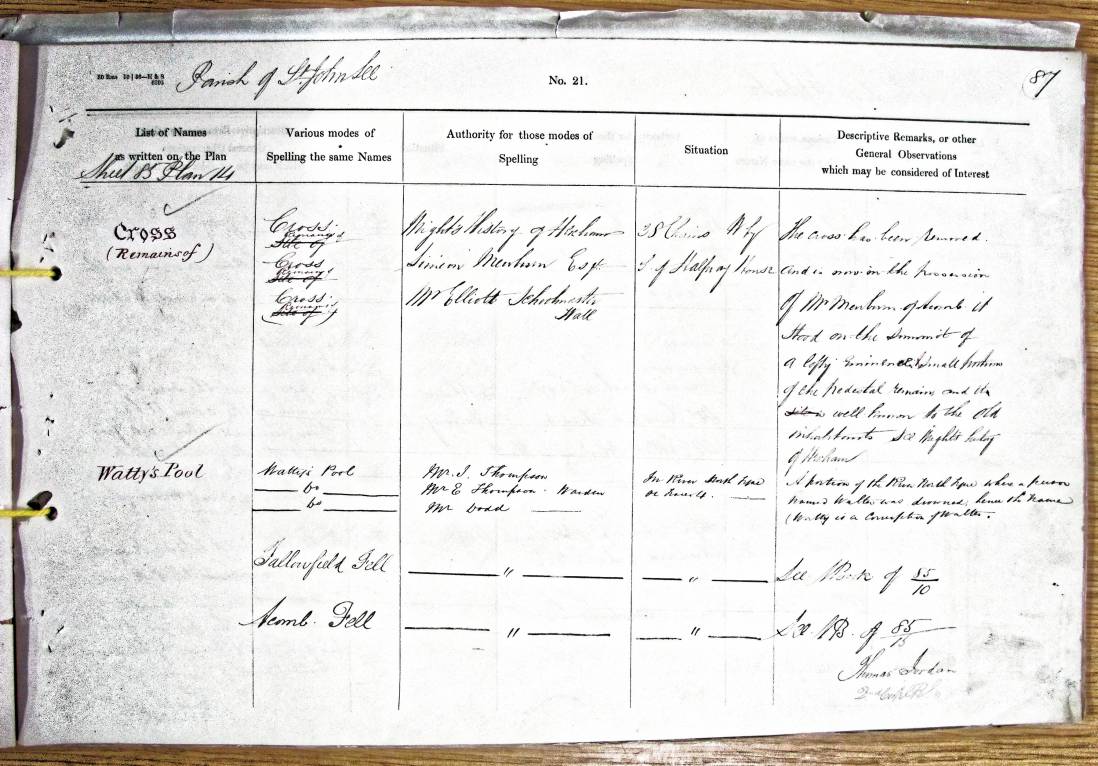 Parish of St. John Lee
No. 21.
87
List of Names
as written on the Plan
Sheet 85 Plan 14
Various modes of
Spelling the same Names
Authority for those modes of
Spelling
Situation
Descriptive Remarks, or other
General Observations
which may be considered of Interest
Cross
(Remains of)
Cross
Remains
Site of
Cross
Remains
Site of
Cross
Remains
(Site of)
Wright's History of Hexham
Simeon Menhum Esqr.
Mr Elliott Schoolmaster
Wall
38 Chains W by
S of Halfway House
The cross has been removed.
and is now in the possession
of Mr Menhum of Acomb it
stood on the summit of
a lofty Eminence Small portion
of the pedestal remains and the
site is well known to the old
inhabitants See Wright's history
of Hexham
Watty's Pool
Watty's Pool
Do
Do
Mr. J. Thompson
Mr E Thompson Warden
Mr Dodd
In River North Tyne
A portion of the River North Tyne where a person
named Walter was drowned, hence the Name
(Watty is a Corruption of Walter.
Fallowfield Fell
"
"
See N. Bk of 85/10
Acomb Fell
"
"
See NB. of 85/15
Thomas Jordan